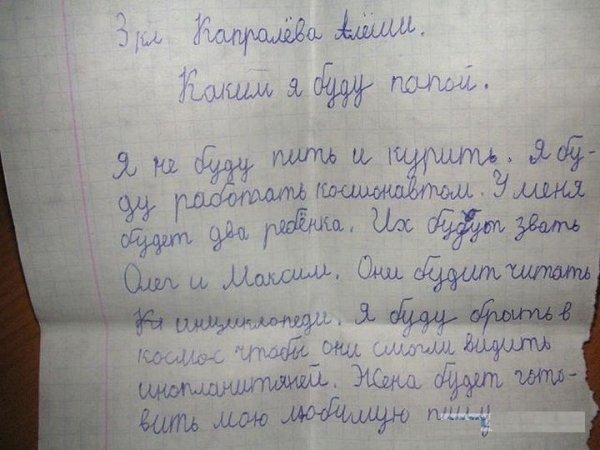 3 кл Капралёва Алёши.
Каким я буду папой.
Я не буду пить и курить. Я бу-
ду работать космонавтом. У меня
будет два ребёнка. Их будут звать
Олег и Максим. Они будит читать
инциклопеди. Я буду брать в
космос чтобы они смогли видить
инопланитяней. Жена будет гото-
вить мою любимую пиццу